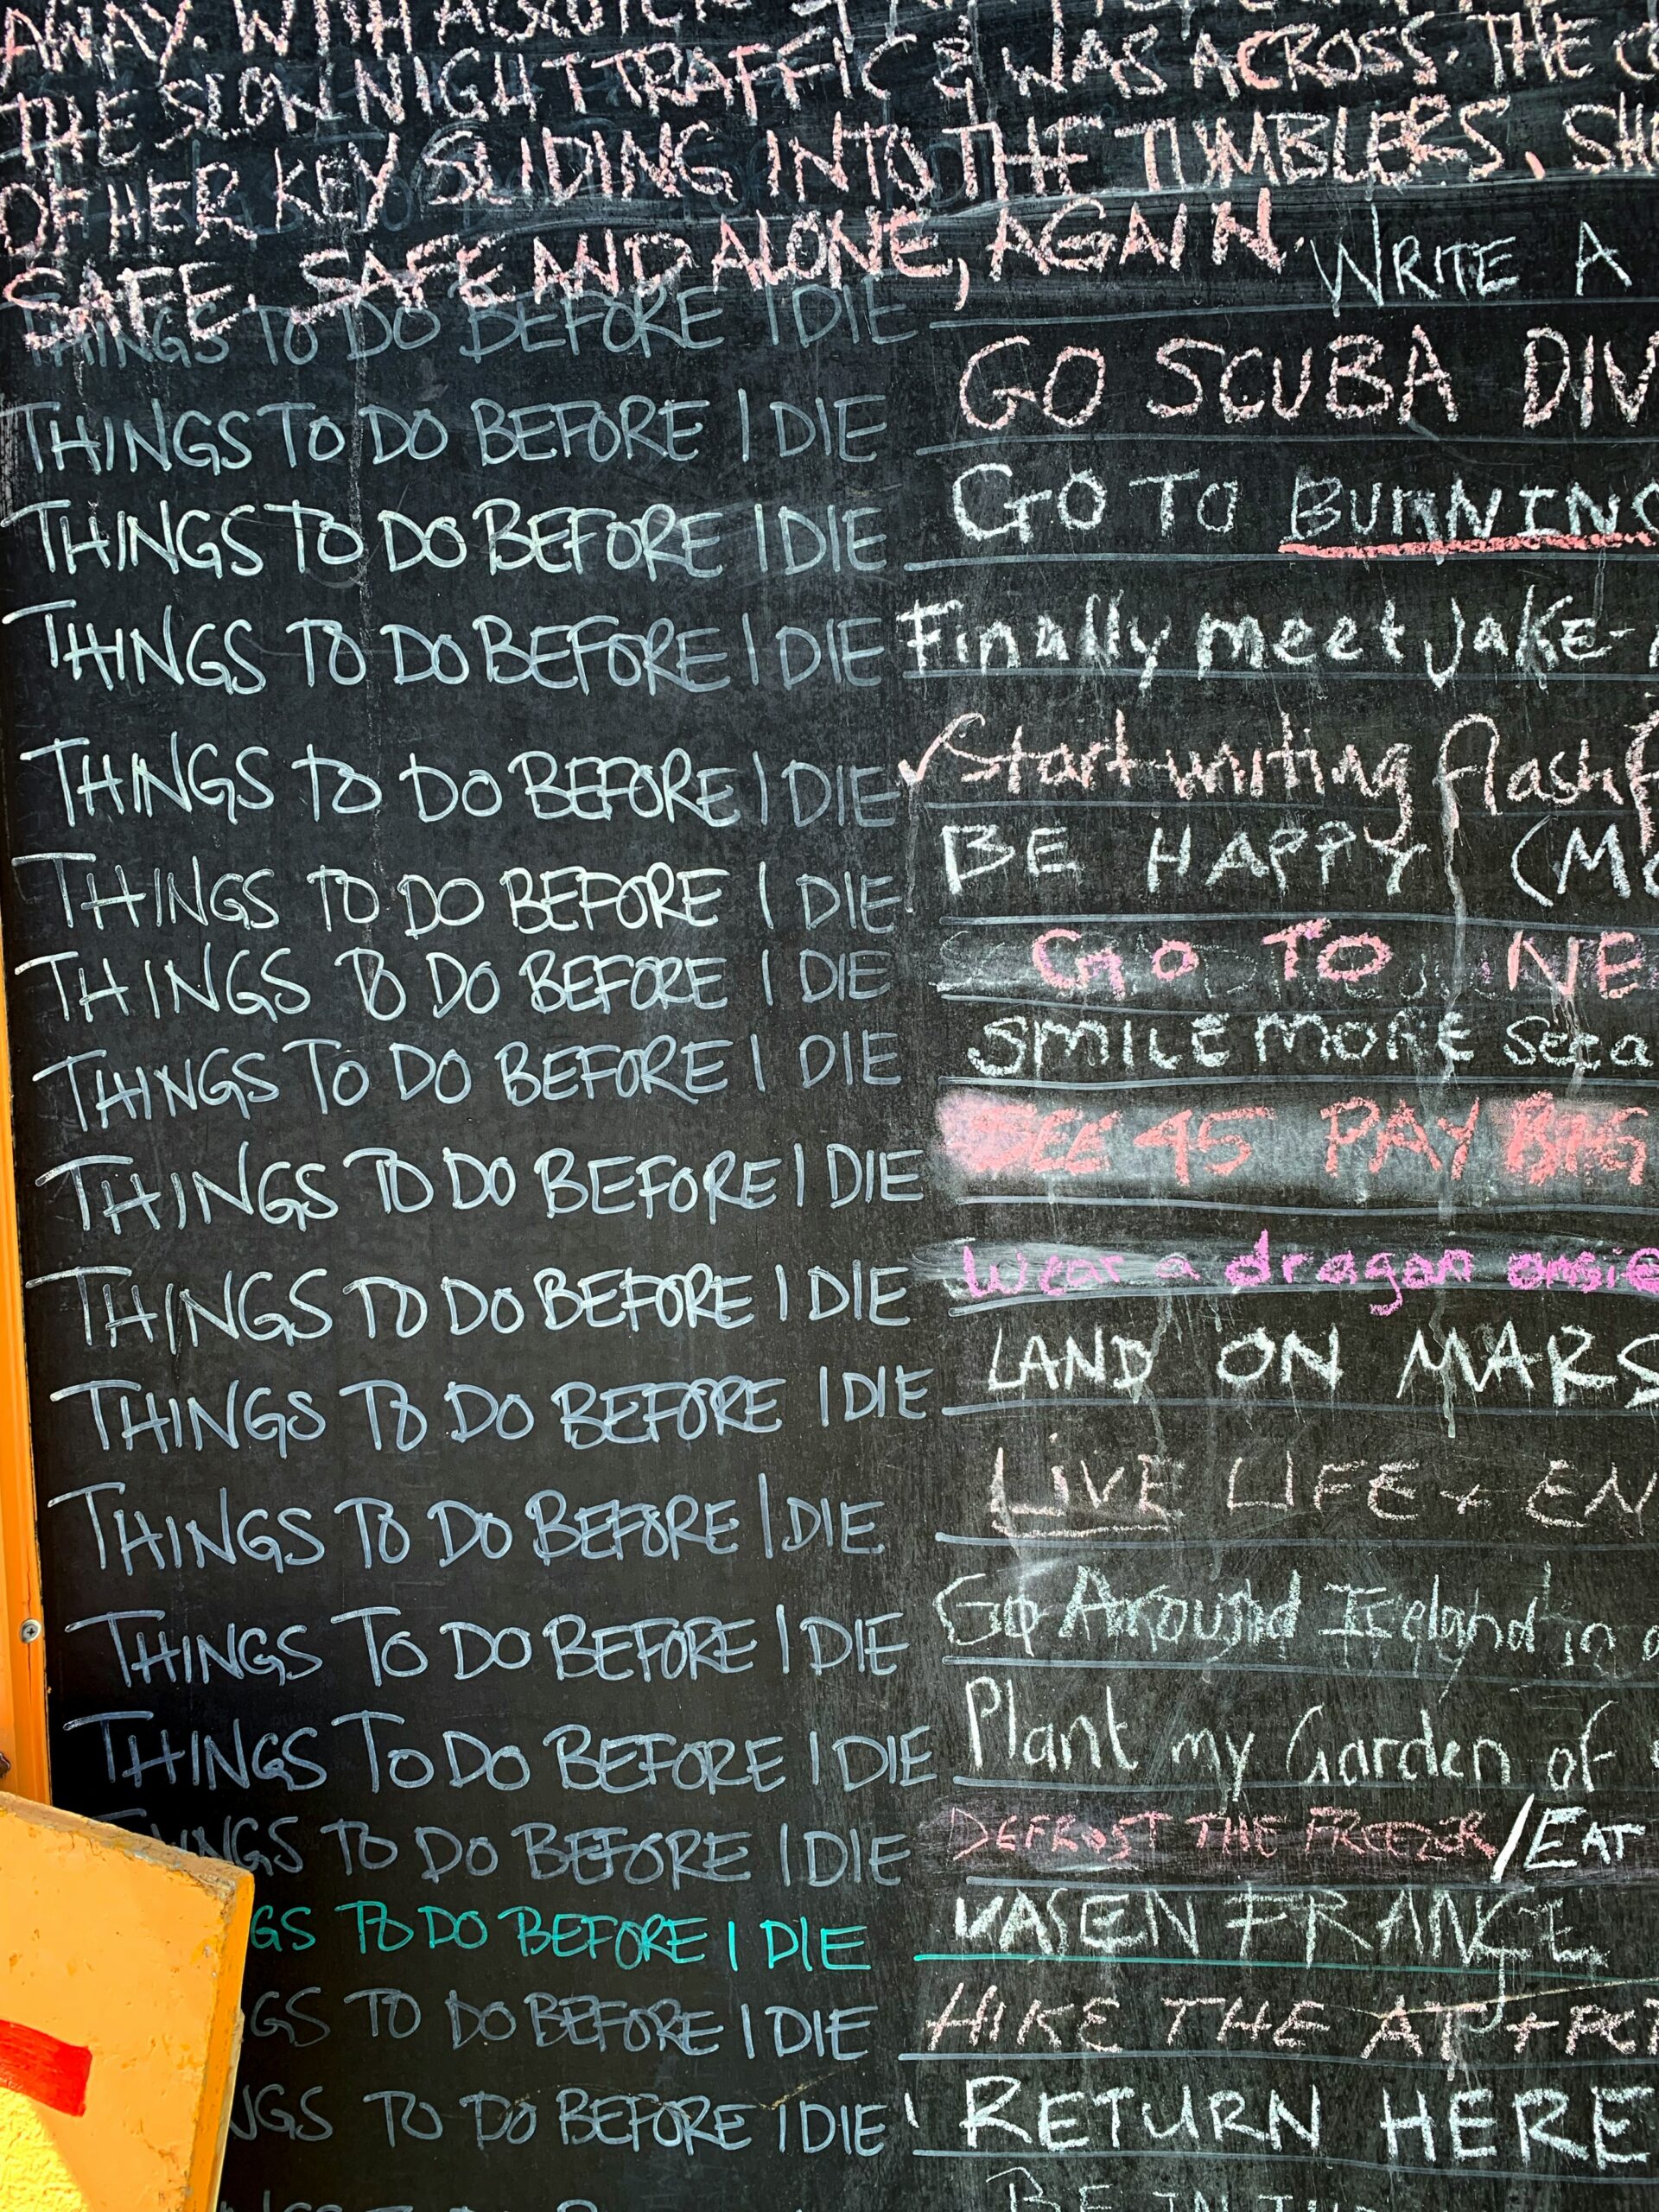 AWAY. WITH
THE SLOW NIGHT TRAFFIC & WAS ACROSS. THE
OF HER KEY SLIDING INTO THE TUMBLERS. SHE
SAFE. SAFE AND ALONE, AGAIN.
THINGS TO DO BEFORE I DIE WRITE A
THINGS TO DO BEFORE I DIE GO SCUBA DIV
THINGS TO DO BEFORE I DIE GO TO BURNING
THINGS TO DO BEFORE I DIE Finally meet Jake-
THINGS TO DO BEFORE I DIE Start writing flash f
THINGS TO DO BEFORE I DIE BE HAPPY (MO
THINGS TO DO BEFORE I DIE GO TO NE
THINGS TO DO BEFORE I DIE SMILE MORE
THINGS TO DO BEFORE I DIE SEE 45 PAY BIG
THINGS TO DO BEFORE I DIE Wear a dragon onsie
THINGS TO DO BEFORE I DIE LAND ON MARS
THINGS TO DO BEFORE I DIE LIVE LIFE + EN
THINGS TO DO BEFORE I DIE Go Around Iceland in a
THINGS TO DO BEFORE I DIE Plant my Garden of
NGS TO DO BEFORE I DIE DEFROST THE FREEZER /EAT
GS TO DO BEFORE I DIE VASEN FRANCE
GS TO DO BEFORE I DIE HIKE THE AT + PCT
NGS TO DO BEFORE I DIE RETURN HERE
BE IN